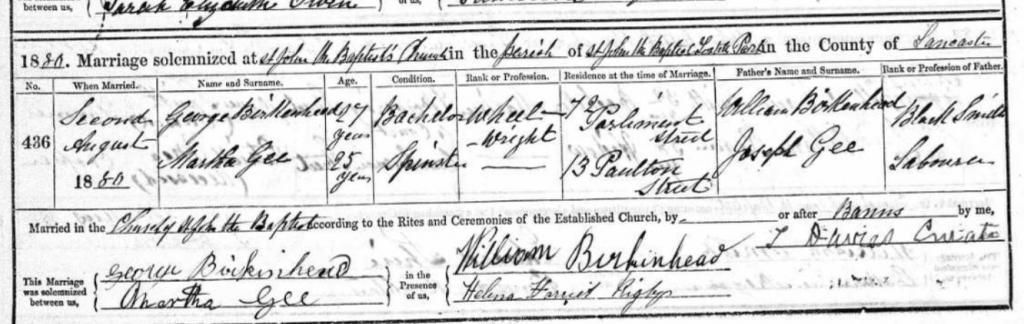 between us,
of us,
1880. Marriage solemnized at St John the Baptist's Church in the Parish of St John the Baptist Toxteth Park in the County of Lancaster
No. When Married. Name and Surname. Age. Condition. Rank or Profession. Residence at the time of Marriage. Father's Name and Surname. Rank or Profession of Father.
436 Second August 1880 George Birkenhead 27 years Bachelor Wheel-wright Parliment Street William Birkenhead Black Smith
Martha Gee 25 years Spinster 13 Paulton Street Joseph Gee Labourer
Married in the Church of St John the Baptist according to the Rites and Ceremonies of the Established Church, by or after Banns by me,
Davies Curate
This Marriage was solemnized between us, George Birkinhead in the Presence of us, William Birkinhead
Martha Gee Helena Harriet Rigby